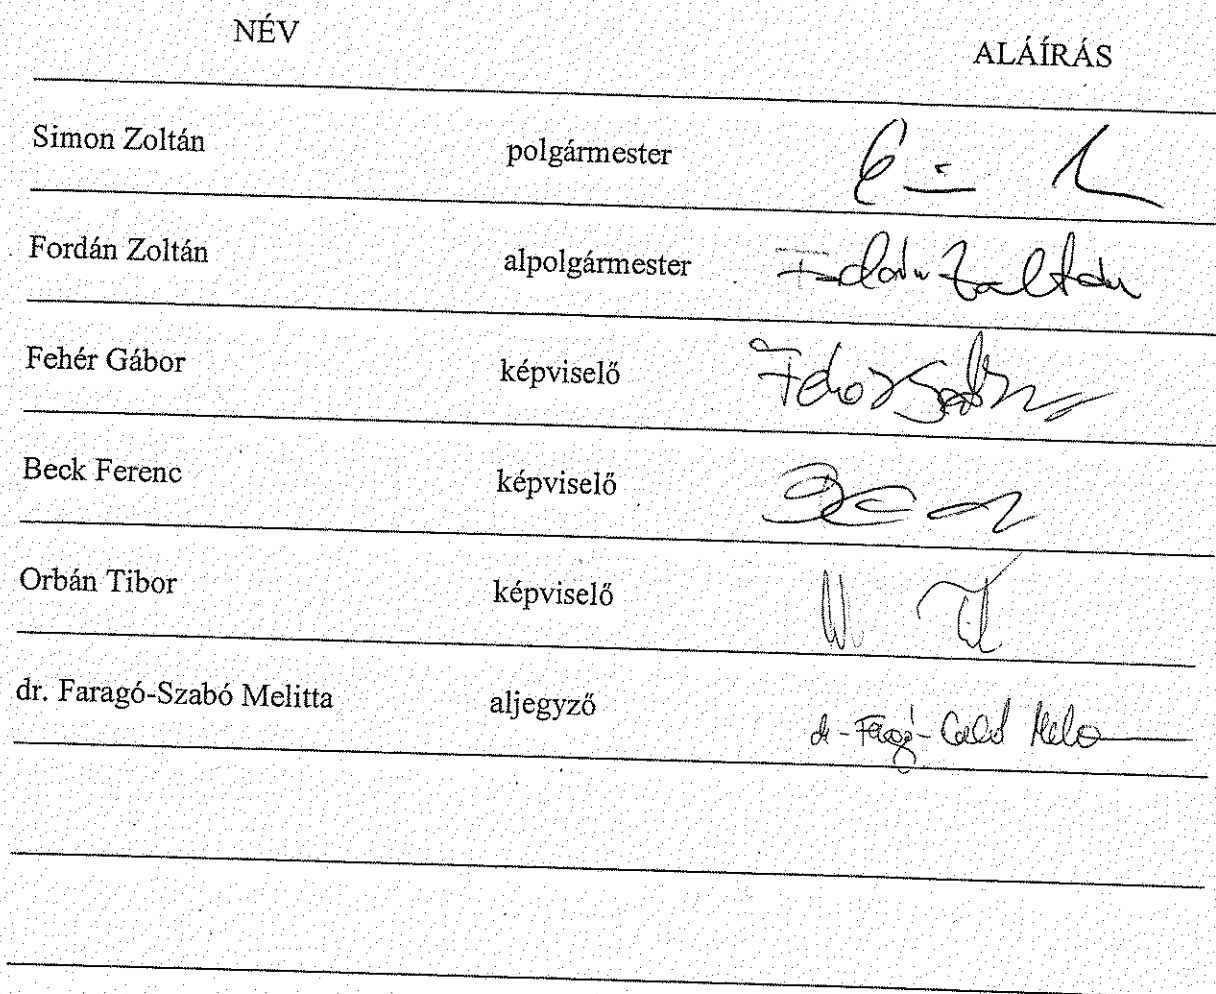 NÉV ALÁÍRÁS
Simon Zoltán polgármester
Fordán Zoltán alpolgármester Fordán Zoltán
Fehér Gábor képviselő Fehér Gábor
Beck Ferenc képviselő
Orbán Tibor képviselő
dr. Faragó-Szabó Melitta aljegyző